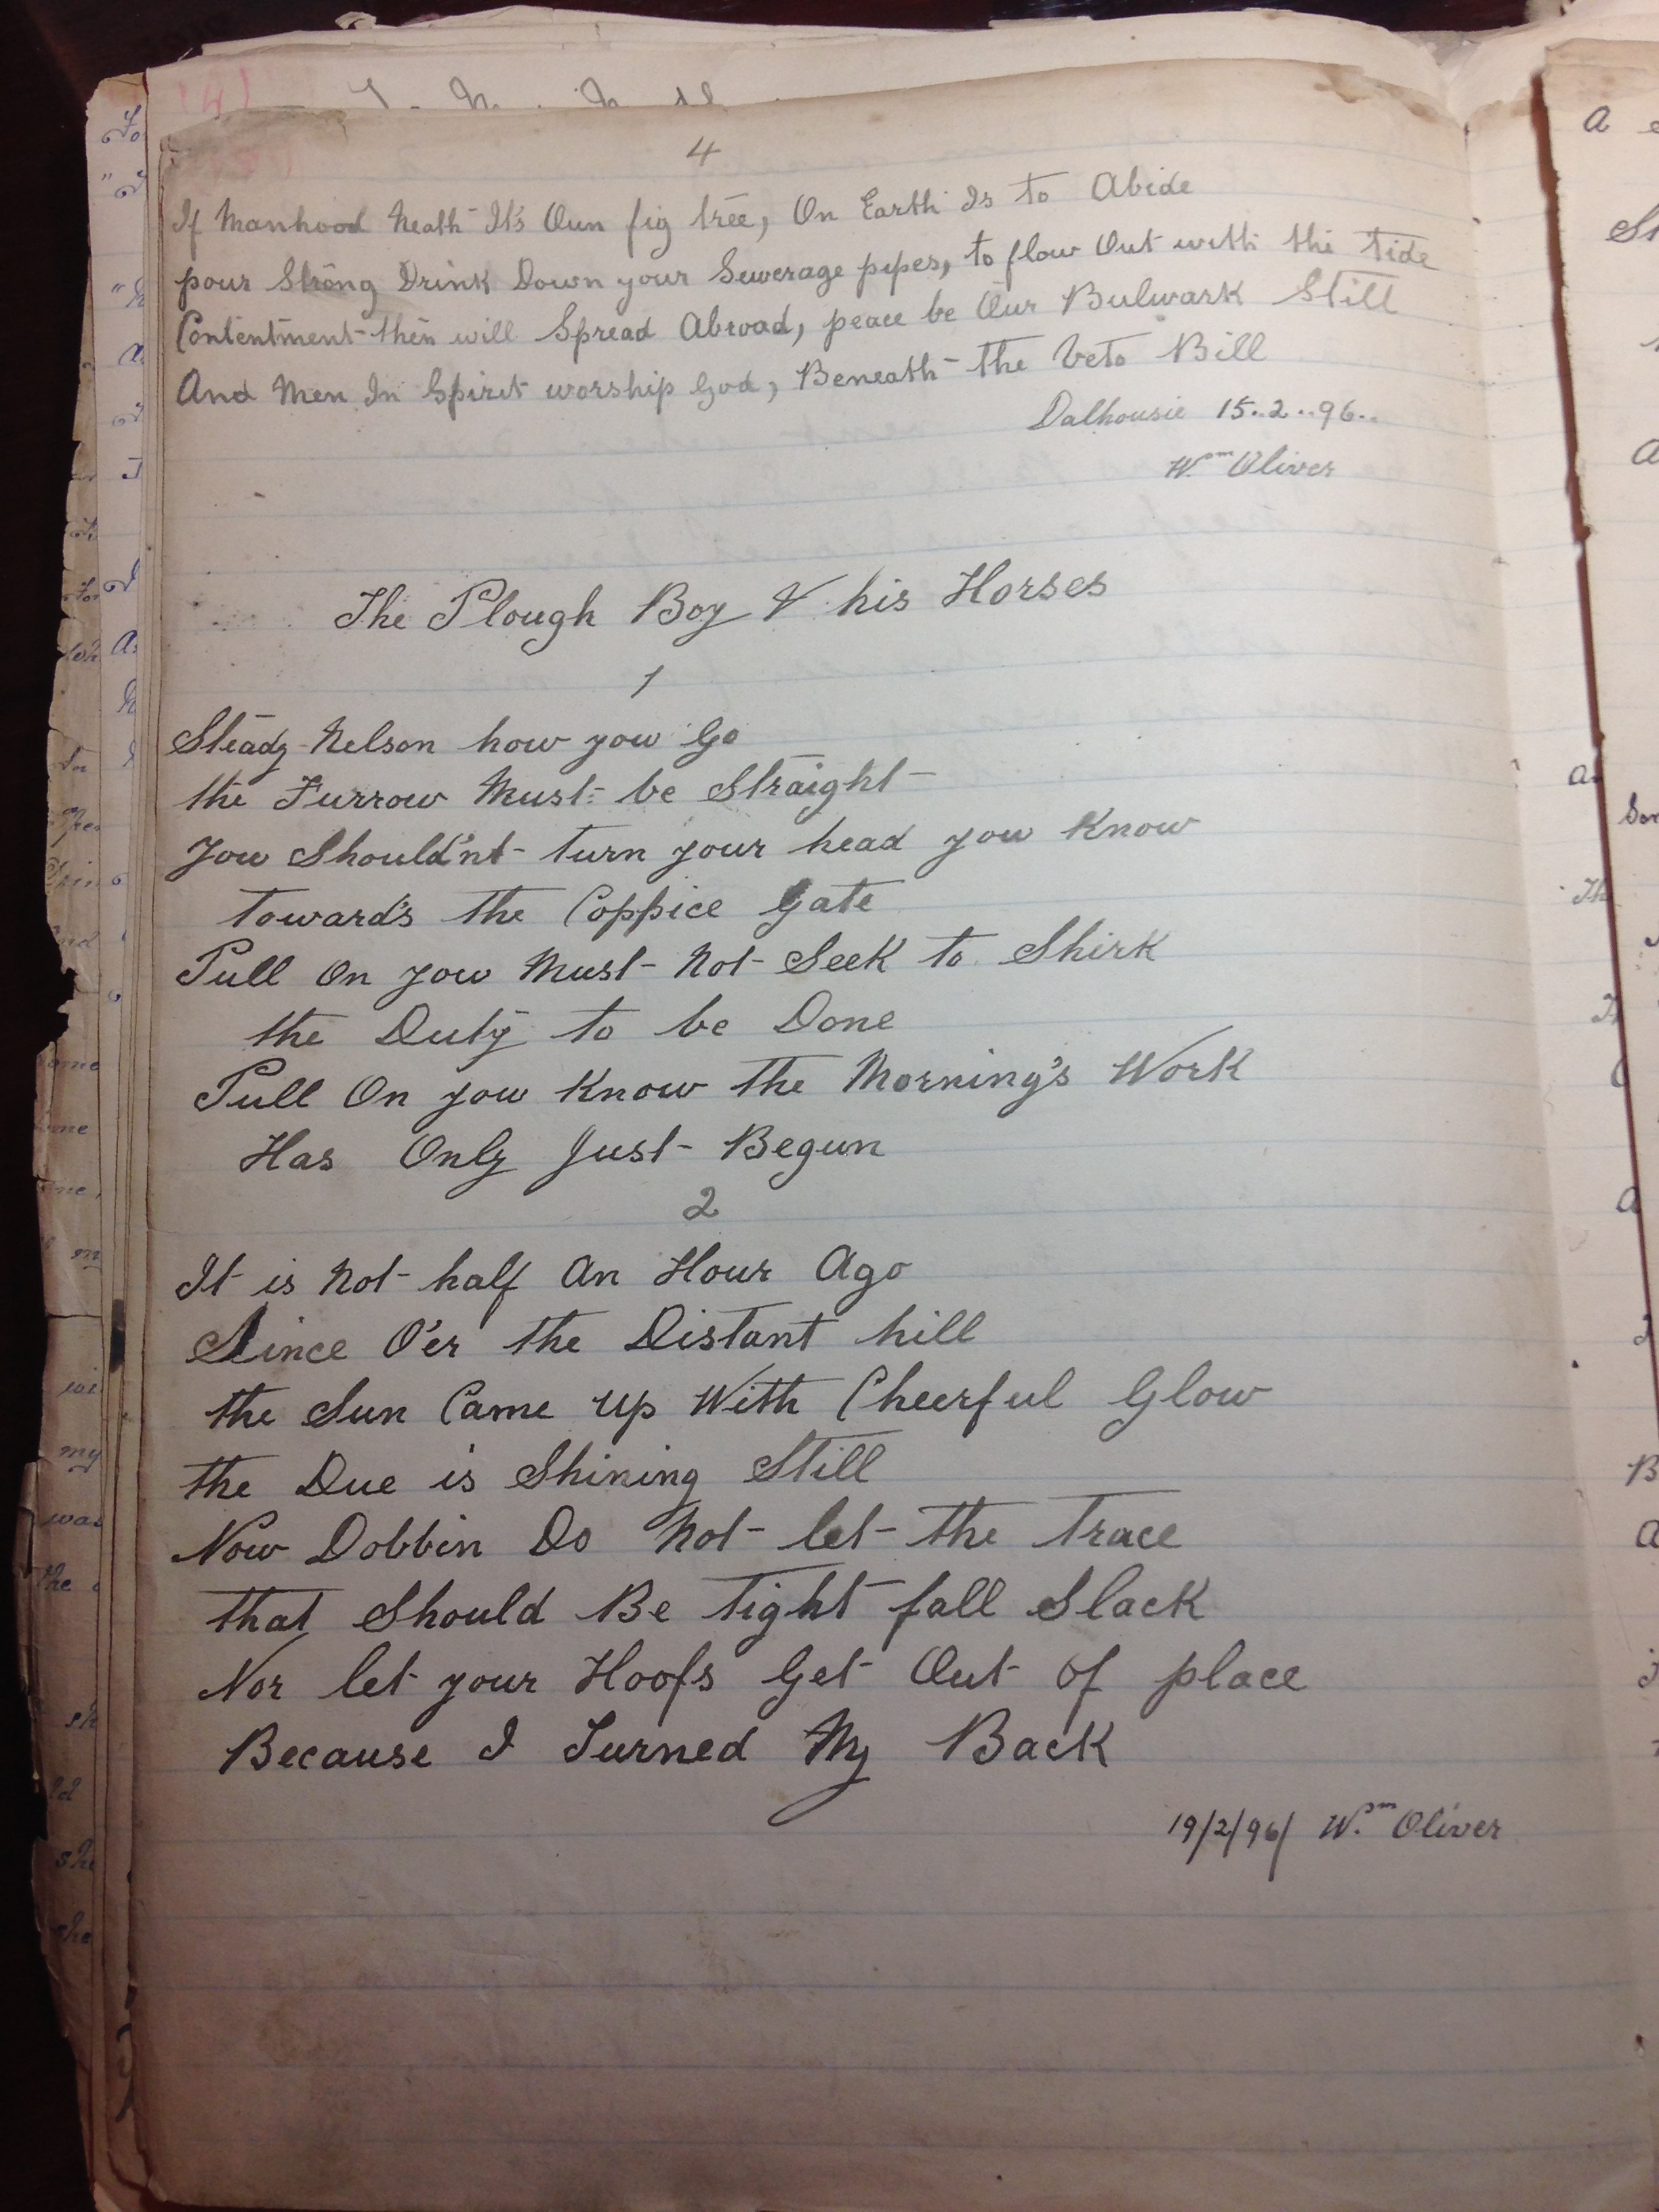 4
If Manhood Neath It's Own fig tree, On Earth Is to Abide
pour Strong Drink Down your Sewerage pipes, to flow Out with the Tide
Contentment then will Spread Abroad, peace be Our Bulwark Still
And Men In Spirit worship God, Beneath the Veto Bill
Dalhousie 15..2..96..
Wm Oliver
The Plough Boy & his Horses
1
Steady Nelson how you Go
the Furrow Must be Straight
You Should'nt turn your head you Know
Toward's the Coppice Gate
Pull On you Must Not Seek to Shirk
the Duty to be Done
Pull On you Know the Morning's Work
Has Only Just Begun
2
It is Not half An Hour Ago
Since O'er the Distant hill
the Sun Came Up With Cheerful Glow
the Due is Shining Still
Now Dobbin Do Not let the Trace
that Should Be Tight fall Slack
Nor let your Hoofs Get Out Of place
Because I Turned My Back
19/2/96/ Wm Oliver